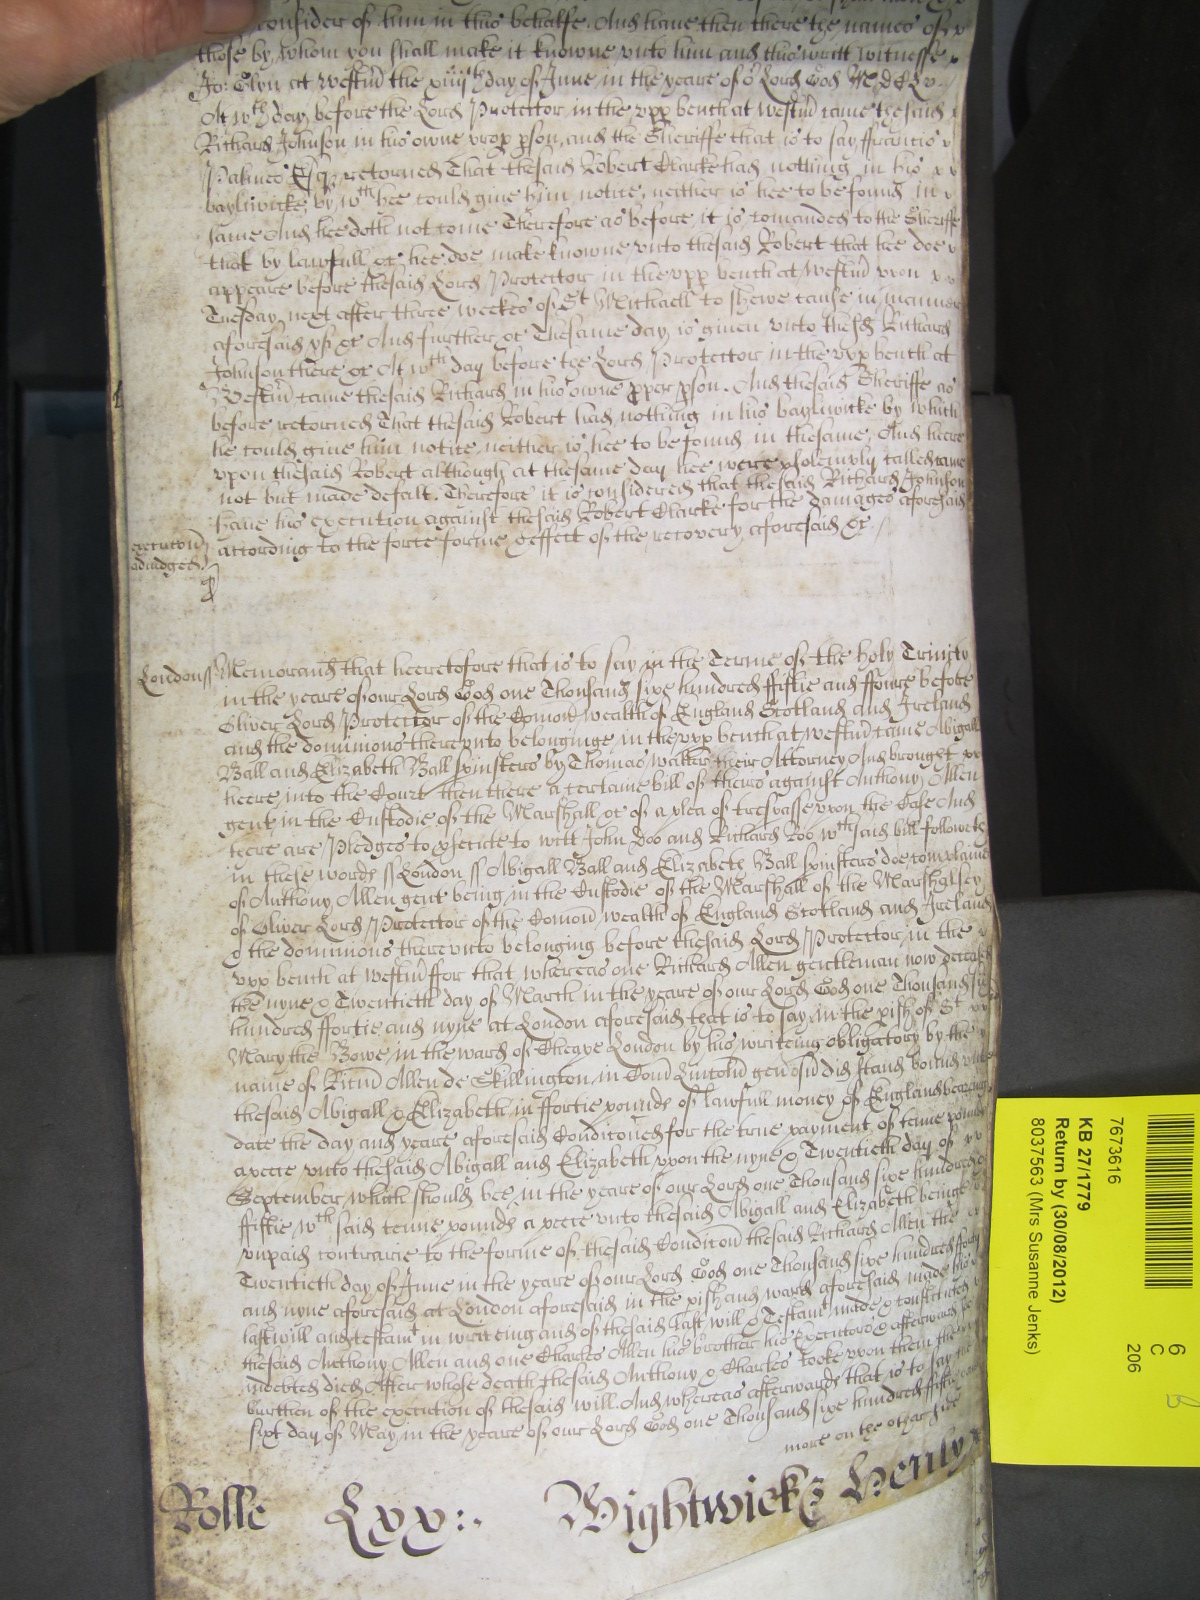 consider of him in this behalfe. And have then there the names of
those by whom you shall make it knowne vnto him and this writt Witnesse
Jo: Glyn at Westm̃ the xiiijth day of June in the yeare of oʳ Lord God M.D.C.Lv.
At wch day before the Lord Protector in the vpp bench at Westm̃ came thesaid
Richard Johnson in his owne prop pson, and the Sheriffe that is to say ffrancis
Esqʳ retorned That thesaid Robert Clarke had nothing in his
bayliwicke by wch hee could give him notice, neither is hee to be found in
same And hee doth not come Therefore as before it is comanded to the Sheriffe
that by lawfull &c hee doe make knowne vnto thesaid Robert that hee doe
appeare before thesaid Lord Protector in the vpp bench at Westm̃ vpon
Tuesday next after three weekes of St Michaell to shewe cause in manner
aforesaid yf &c And further &c Thesame day is given vnto thesd Richard
Johnson there &c At wch day before the Lord Protector in the vpp bench at
Westm̃ came thesaid Richard in his owne pper pson. And thesaid Sheriffe as
before retorned That thesaid Robert had nothing in his bayliwicke by which
he could give him notice neither is hee to be found in thesame, And heere
vpon thesaid Robert although at thesame day hee were solemnly called came
not but made defalt. Therefore it is considered that thesaid Richard Johnson
have his execution against thesaid Robert Clarke for the damages aforesaid
according to the force forme & effect of the recovery aforesaid &c
execucon
adiudged.
London ss Memorand that heeretofore that is to say in the Terme of the holy Trinity
in the yeare of our Lord God one Thousand sixe hundred ffiftie and ffoure before
Oliver Lord Protector of the Comon wealth of England Scotland and Ireland
and the dominions therevnto belonginge in the vpp bench at Westm̃ came Abigall
Ball and Elizabeth Ball spinsters by Thomas Walker their Attorney And brought
heere into the Court then there a certaine bill of theirs against Anthony Allen
gent in the Custodie of the Marshall &c of a plea of trespasse vpon the Case And
there are Pledges to psecute to witt John Doo and Richard Roo wch said bill followeth
in these words ss London ss Abigall Ball and Elizabeth Ball spinsters doe complaine
of Anthony Allen gent being in the Custodie of the Marshall of the Marshalsey
of Oliver Lord Protector of the Comon wealth of England Scotland and Ireland
& the dominions therevnto belonging before thesaid Lord Protector in the
vpp bench at Westm̃ ffor that whereas one Richard Allen gentleman now deceased
the nyne & Twentieth day of March in the yeare of our Lord God one Thousand six
hundred ffortie and nyne at London aforesaid that is to say in the pish of St
Mary the Bowe in the ward of Cheape London by his writeing obligatory by the
name of Ricum Allen de Skillington in Com̃ Lincoln gen did stand bound vnto
thesaid Abigall & Elizabeth in ffortie pounds of lawfull money of England beareing
date the day and yeare aforesaid Conditoned for the true payment of tenne pounds
apeece vnto thesaid Abigall and Elizabeth vpon the nyne & Twentieth day of
September which should bee in the yeare of our Lord one Thousand sixe hundred
ffiftie wch said tenne pounds a peece vnto thesaid Abigall and Elizabeth beinge
vnpaid contrarie to the forme of thesaid Conditon thesaid Richard Allen the
Twentieth day of June in the yeare of our Lord God one Thousand sixe hundred forty
and nyne aforesaid at London aforesaid in the pish and ward aforesaid made his
last will and testamt in writeing and of thesaid last will & Testamt made & constituted
thesaid Anthony Allen and one Charles Allen his brother his Executors & afterwards
indebted died After whose death thesaid Anthony & Charles tooke vpon them the
burthen of the execution of thesaid will. And whereas afterwards that is to say the
sixt day of May in the yeare of our Lord God one Thousand sixe hundred ffiftie
more on the other side
Rolle Lxx:. Wightwick & Henly
7673616
KB 27/1779
Return by (30/08/2012)
8037563 (Mrs Susanne Jenks)
6
C
206